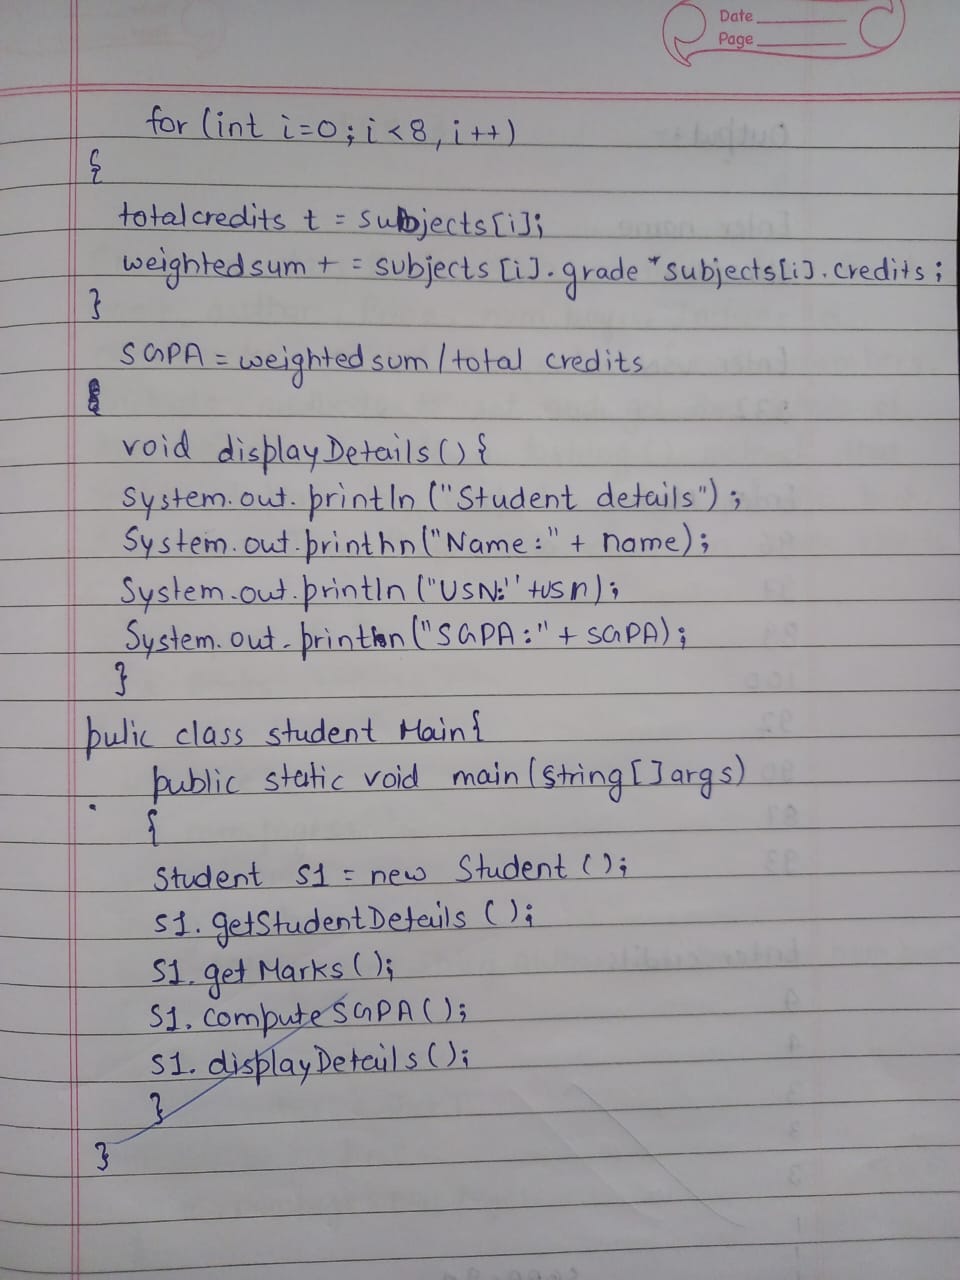 Date
Page
for (int i=0; i<8, i++)
{
totalcredits t = subjects[i];
weightedsum + = subjects[i].grade*subjects[i].credits;
}
SGPA = weightedsum / total credits
void displayDetails(){
System.out.println("Student details");
System.out.printhn("Name:" + name);
System.out.println("USN:"+usn);
System.out.println("SGPA:" + SGPA);
}
pulic class student Main{
public static void main(String[]args)
{
Student S1 = new Student();
S1.getStudentDetails();
S1.getMarks();
S1.computeSGPA();
S1.displayDetails();
}
}